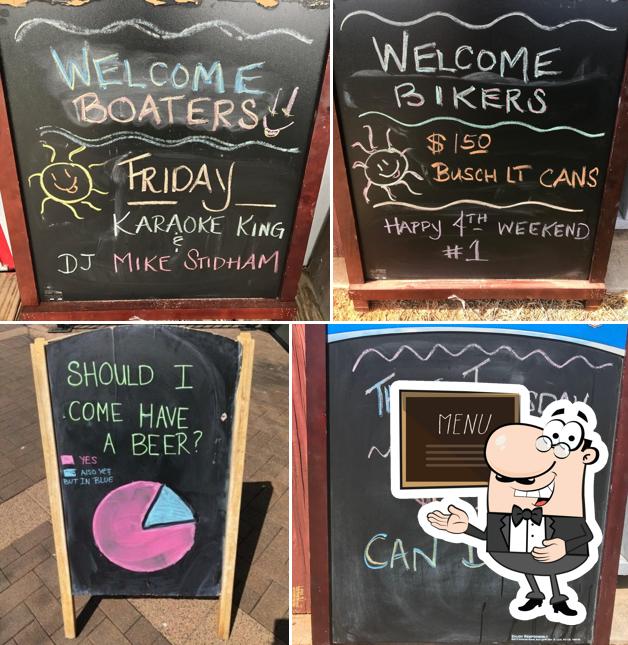 WELCOME
BOATERS
FRIDAY
KARAOKE KING
&
DJ MIKE STIDHAM
WELCOME
BIKERS
$150
BUSCH LT CANS
HAPPY 4TH WEEKEND
#1
SHOULD I
COME HAVE
A BEER?
YES
ALSO YES
BUT IN BLUE
MENU
CAN